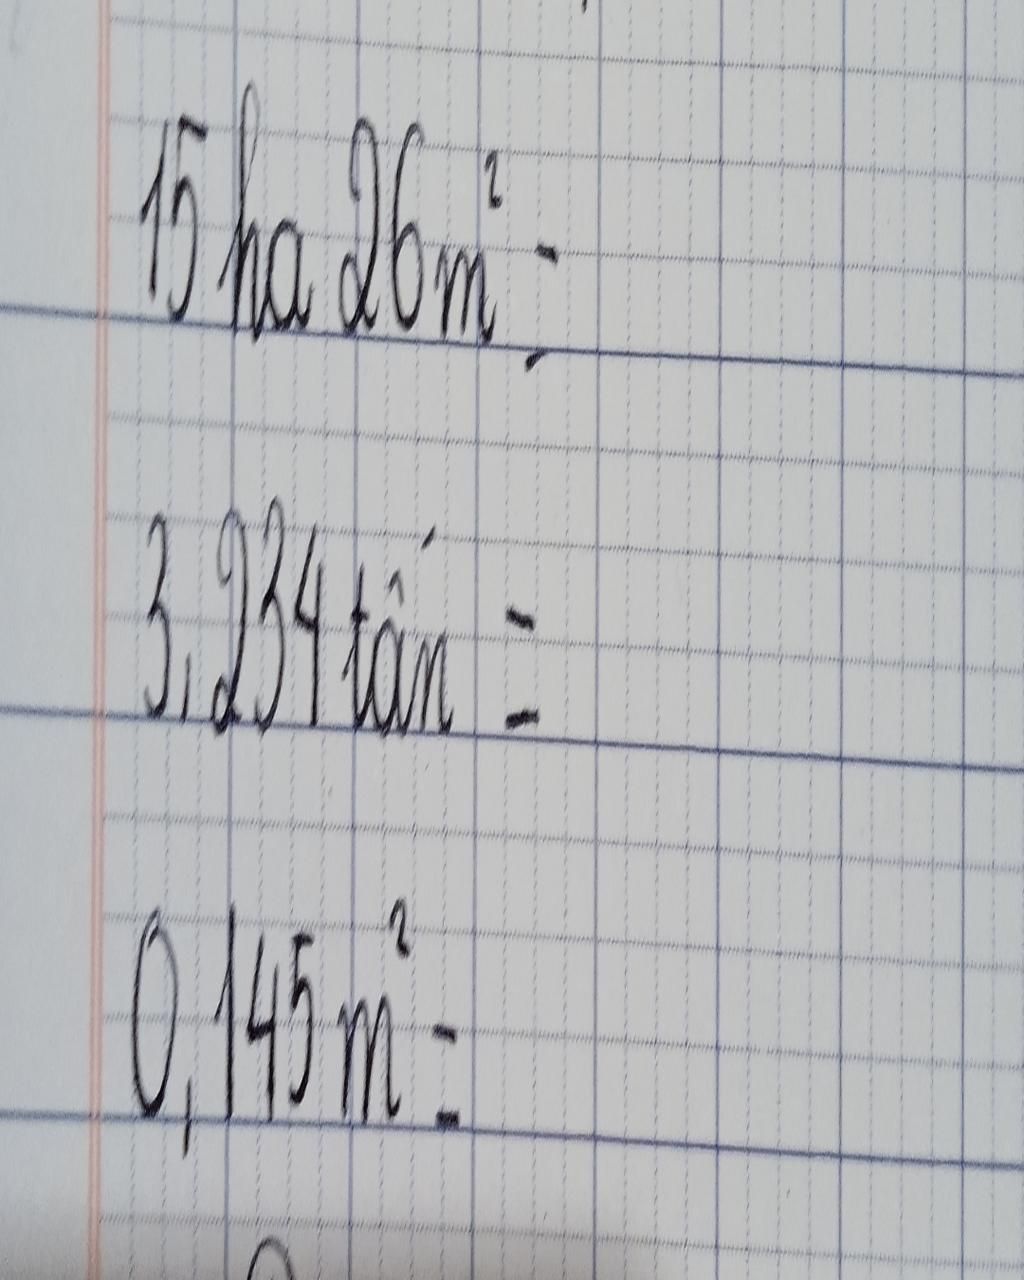 15 ha 26 m² =
3,234 tấn =
0,145 m² =